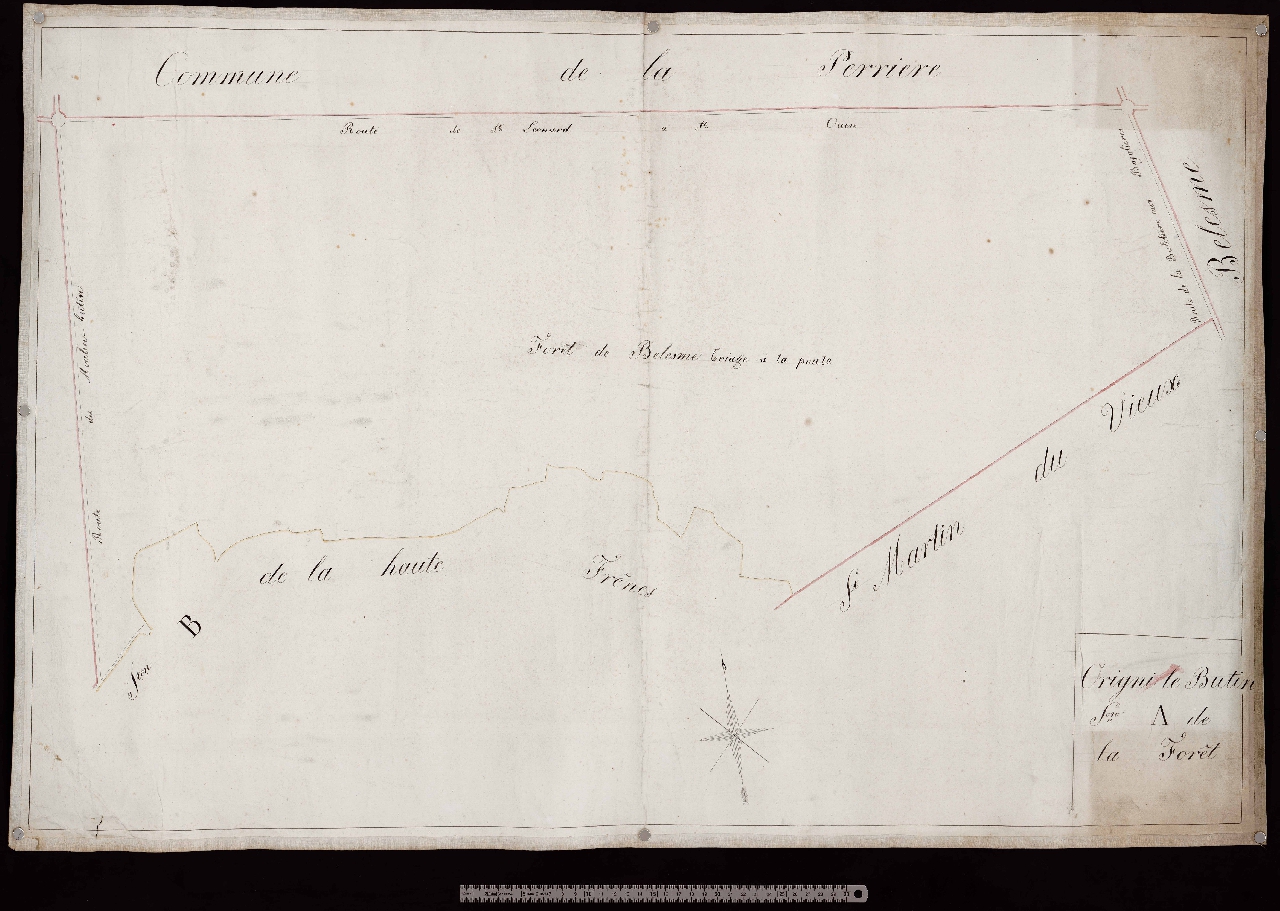 Commune de la Perriere
Route de St Leonard a St Ouin
Route de la Bufolieres
Belesme
Route du Moulin butin
Forêt de Belesme Triage a la poule
St Martin du Vieux
de la haute Frênes
Son B
Origni le Butin
Son A de
la Forêt